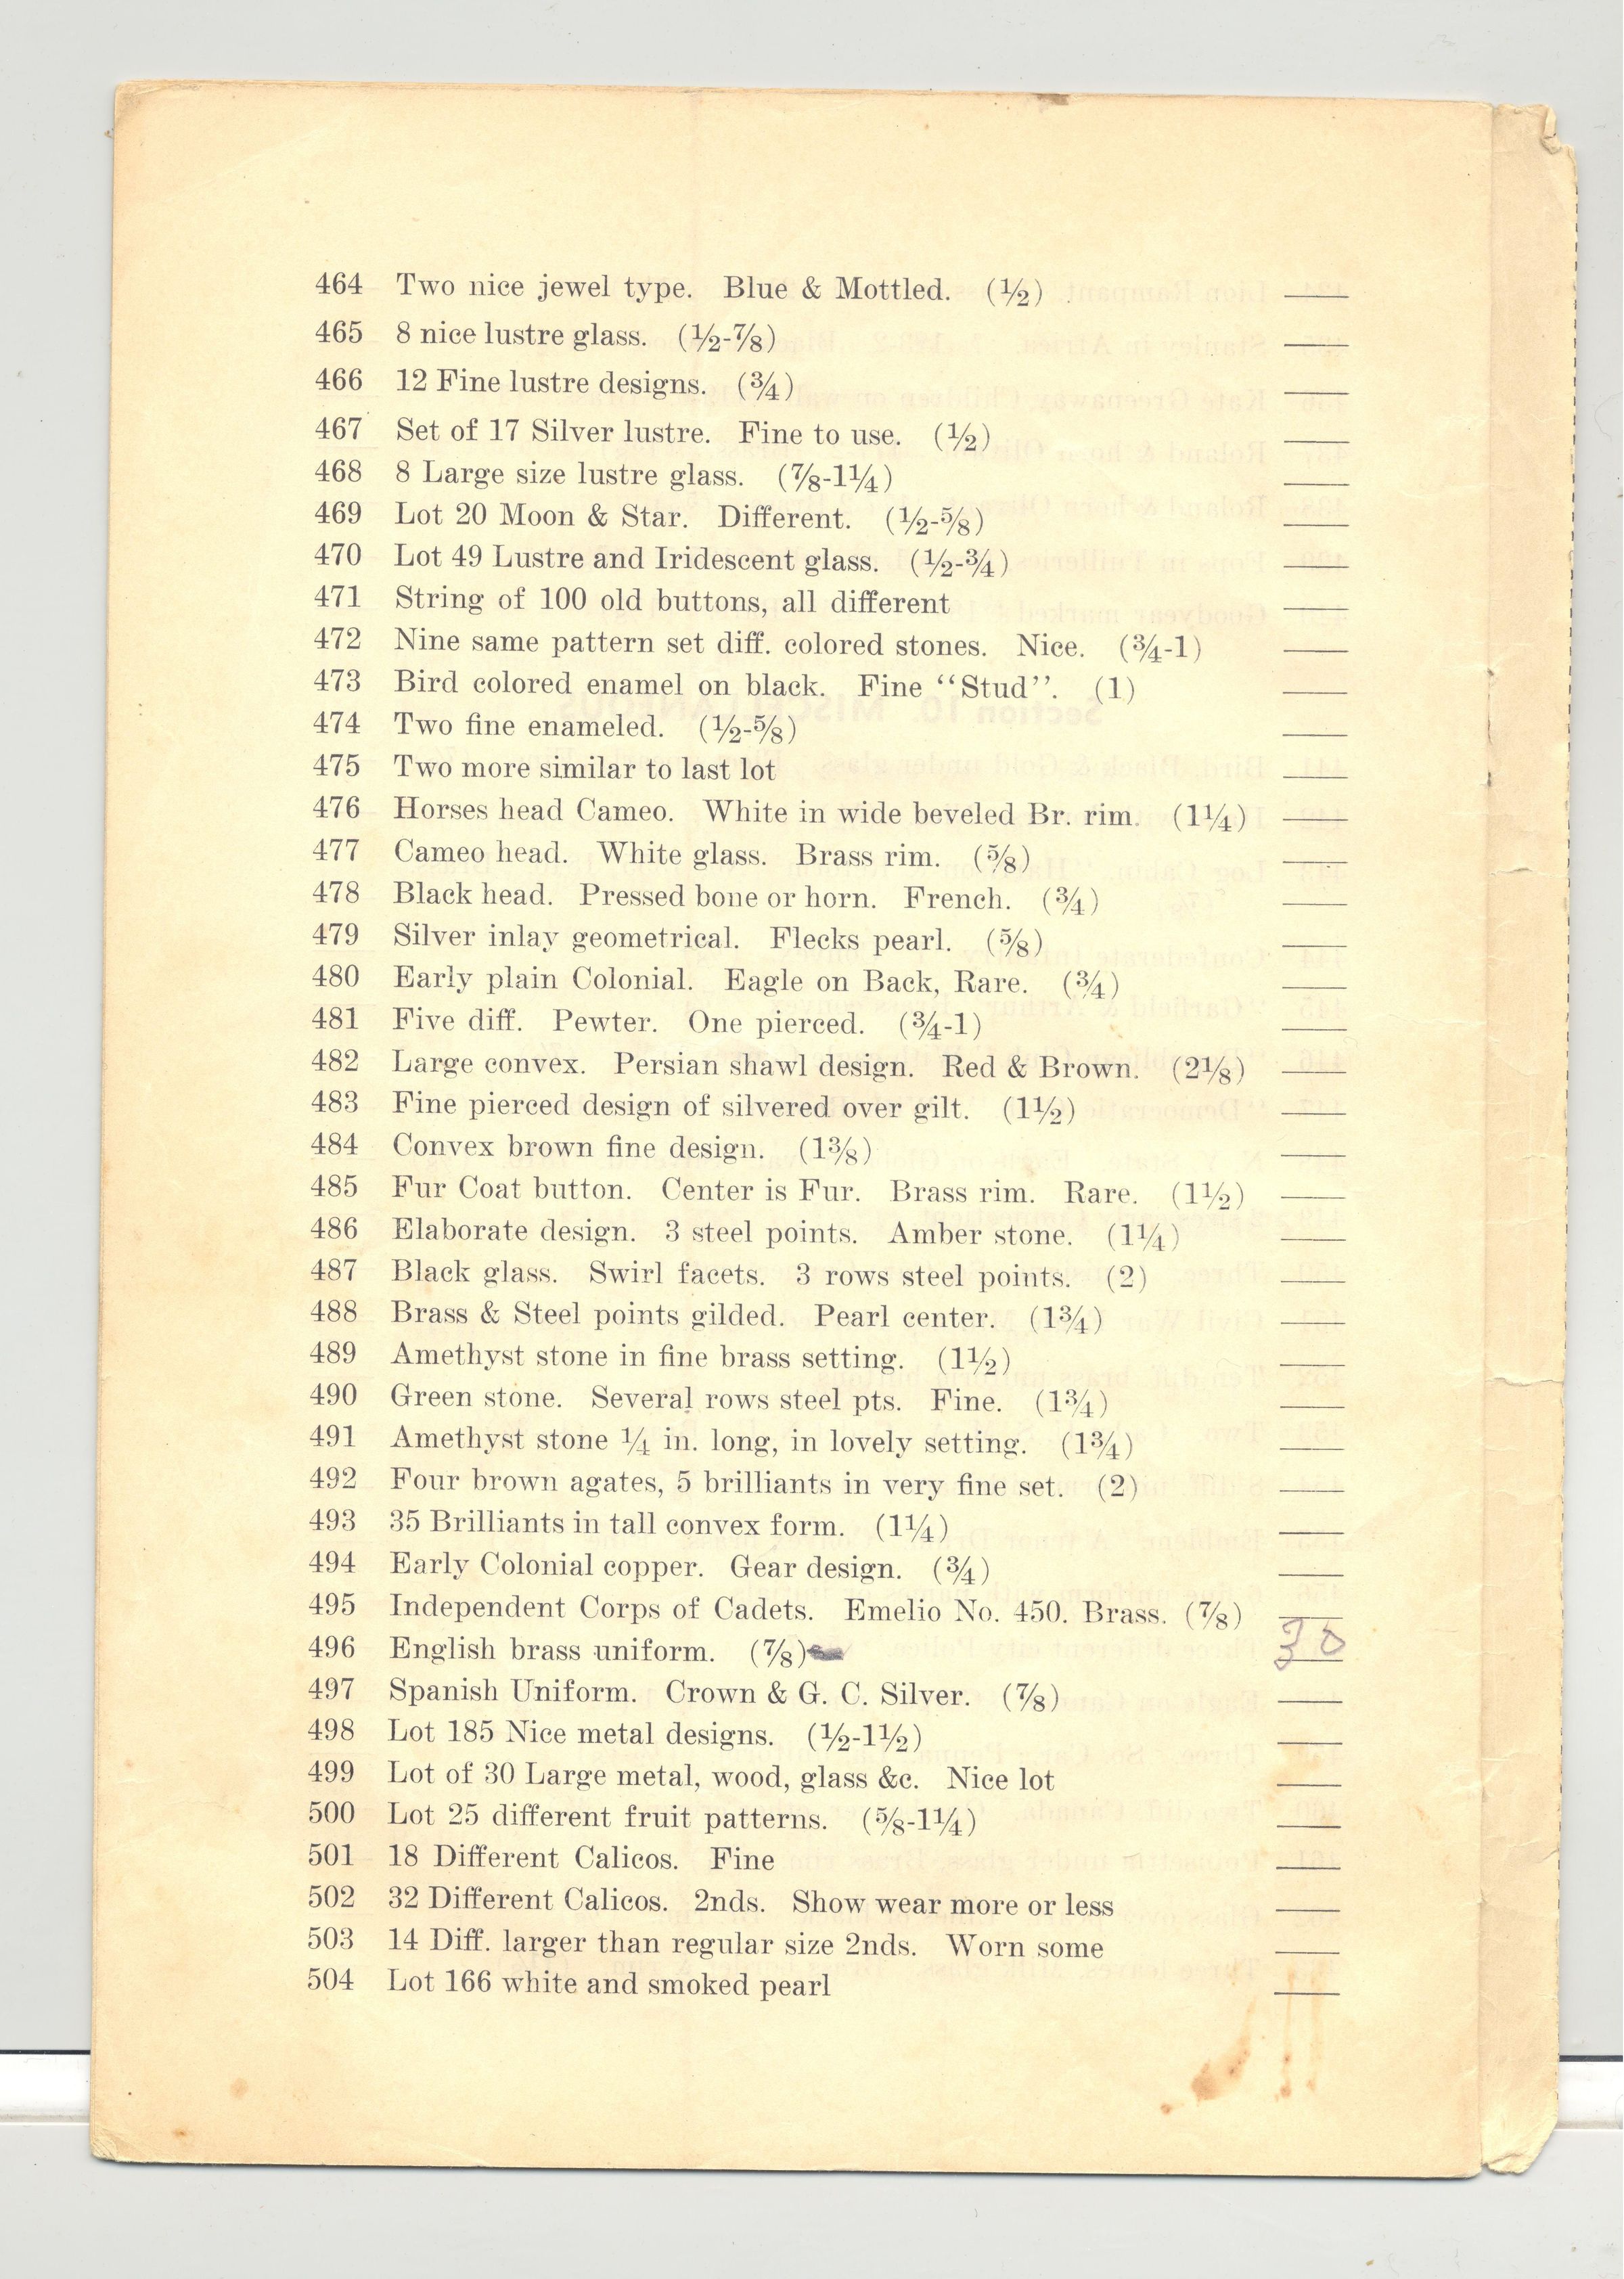 464 Two nice jewel type. Blue & Mottled. (½)
465 8 nice lustre glass. (½-⅞)
466 12 Fine lustre designs. (¾)
467 Set of 17 Silver lustre. Fine to use. (½)
468 8 Large size lustre glass. (⅞-1¼)
469 Lot 20 Moon & Star. Different. (½-⅝)
470 Lot 49 Lustre and Iridescent glass. (½-¾)
471 String of 100 old buttons, all different
472 Nine same pattern set diff. colored stones. Nice. (¾-1)
473 Bird colored enamel on black. Fine "Stud". (1)
474 Two fine enameled. (½-⅝)
475 Two more similar to last lot
476 Horses head Cameo. White in wide beveled Br. rim. (1¼)
477 Cameo head. White glass. Brass rim. (⅝)
478 Black head. Pressed bone or horn. French. (¾)
479 Silver inlay geometrical. Flecks pearl. (⅝)
480 Early plain Colonial. Eagle on Back, Rare. (¾)
481 Five diff. Pewter. One pierced. (¾-1)
482 Large convex. Persian shawl design. Red & Brown. (2⅛)
483 Fine pierced design of silvered over gilt. (1½)
484 Convex brown fine design. (1⅜)
485 Fur Coat button. Center is Fur. Brass rim. Rare. (1½)
486 Elaborate design. 3 steel points. Amber stone. (1¼)
487 Black glass. Swirl facets. 3 rows steel points. (2)
488 Brass & Steel points gilded. Pearl center. (1¾)
489 Amethyst stone in fine brass setting. (1½)
490 Green stone. Several rows steel pts. Fine. (1¾)
491 Amethyst stone ¼ in. long, in lovely setting. (1¾)
492 Four brown agates, 5 brilliants in very fine set. (2)
493 35 Brilliants in tall convex form. (1¼)
494 Early Colonial copper. Gear design. (¾)
495 Independent Corps of Cadets. Emelio No. 450. Brass. (⅞)
496 English brass uniform. (⅞) 30
497 Spanish Uniform. Crown & G. C. Silver. (⅞)
498 Lot 185 Nice metal designs. (½-1½)
499 Lot of 30 Large metal, wood, glass &c. Nice lot
500 Lot 25 different fruit patterns. (⅝-1¼)
501 18 Different Calicos. Fine
502 32 Different Calicos. 2nds. Show wear more or less
503 14 Diff. larger than regular size 2nds. Worn some
504 Lot 166 white and smoked pearl